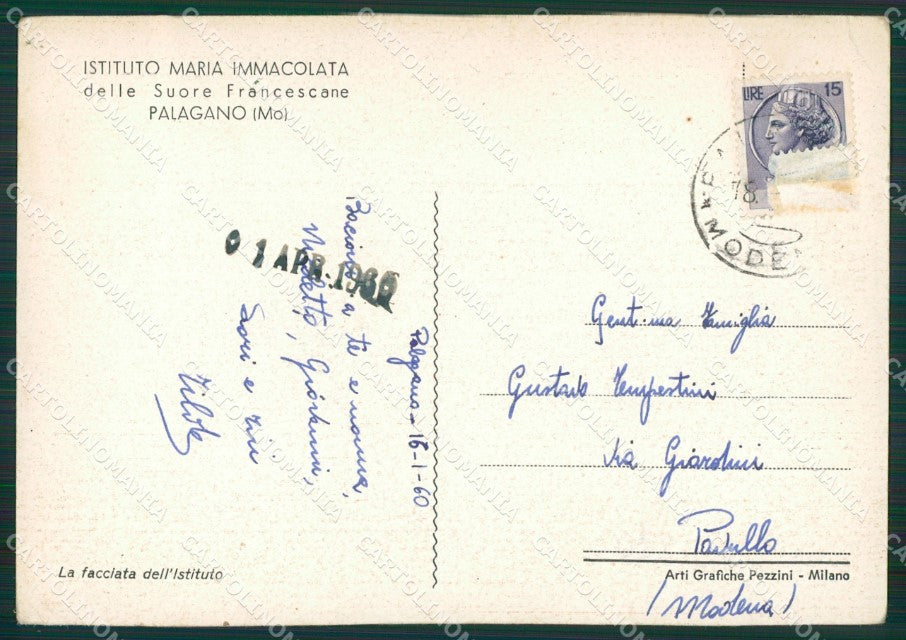 ISTITUTO MARIA IMMACOLATA
delle Suore Francescane
PALAGANO (Mo)
LIRE 15
18.
MODE
0 1 APR. 1960
Palagano - 16-1-60
Bacioni a te e nonna,
Giovanni,
Lori e zii
Tilde
Gent.ma Famiglia
Gustavo Tempestini
Via Giardini
Pavullo
(Modena)
La facciata dell'Istituto
Arti Grafiche Pezzini - Milano
CARTOLINOMANIA